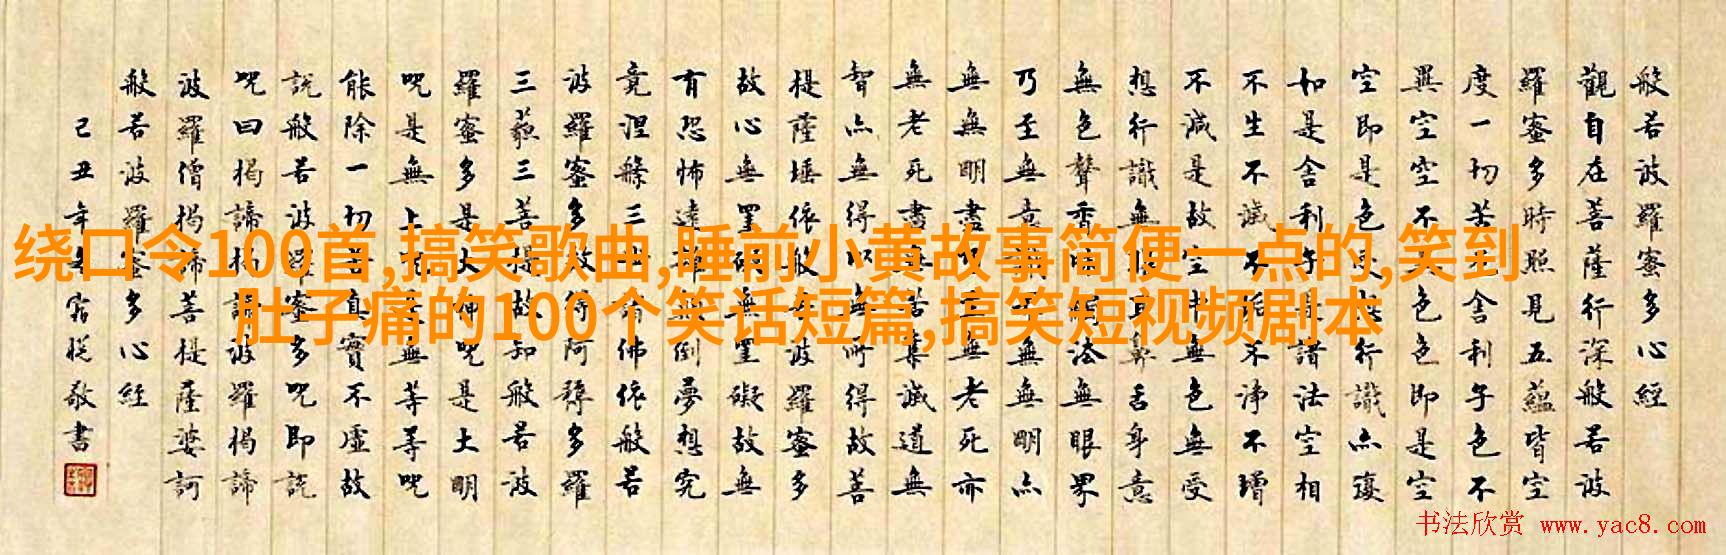 绕口令100首,搞笑歌曲,睡前小黄故事简便一点的,笑到
肚子痛的100个笑话短篇,搞笑短视频剧本
般若波羅蜜多心經
觀自在菩薩行深般若波
羅蜜多時照見五蘊皆空
度一切苦厄舍利子色不
異空空不異色色即是空
空即是色受想行識亦復
如是舍利子是諸法空相
不生不滅不垢不淨不增
不減是故空中無色無受
想行識無眼耳鼻舌身意
無色聲香味觸法無眼界
乃至無意識界無無明亦
無無明盡乃至無老死亦
無老死盡無苦集滅道無
智亦無得以無所得故菩
提薩埵依般若波羅蜜多
故心無罣礙無罣礙故無
有恐怖遠離顛倒夢想究
竟涅槃三世諸佛依般若
波羅蜜多故得阿耨多羅
三藐三菩提故知般若波
羅蜜多是大神呪是大明
呪是無上呪是無等等呪
能除一切苦真實不虛故
說般若波羅蜜多呪即說
呪曰揭諦揭諦波羅揭諦
波羅僧揭諦菩提薩婆訶
般若波羅蜜多心經
己丑年敬書
书法欣赏 www.yac8.com